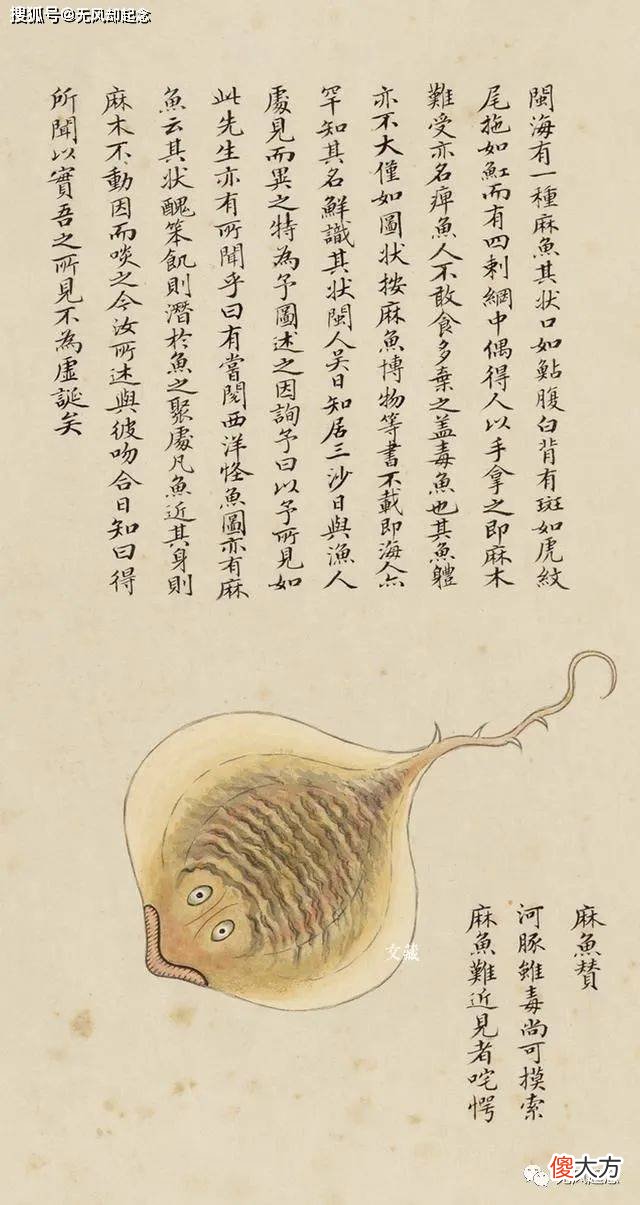 搜狐号@无风却起念
閩海有一種麻魚其狀口如鮎腹白背有斑如虎紋
尾拖如魟而有四刺網中偶得人以手拿之即麻木
難受亦名痺魚人不敢食多棄之盖毒魚也其魚軆
亦不大僅如圖狀按麻魚博物等書不載即海人亦
罕知其名鮮識其狀閩人吳日知居三沙日與漁人
處見而異之特為予圖述之因詢予曰以予所見如
此先生亦有所聞乎曰有嘗閱西洋怪魚圖亦有麻
魚云其狀醜笨飢則潛於魚之聚處凡魚近其身則
麻木不動因而啖之今汝所述與彼吻合日知曰得
所聞以實吾之所見不為虛誕矣
麻魚賛
河豚雖毒尚可摸索
麻魚難近見者咤愕
文藏
傻大方